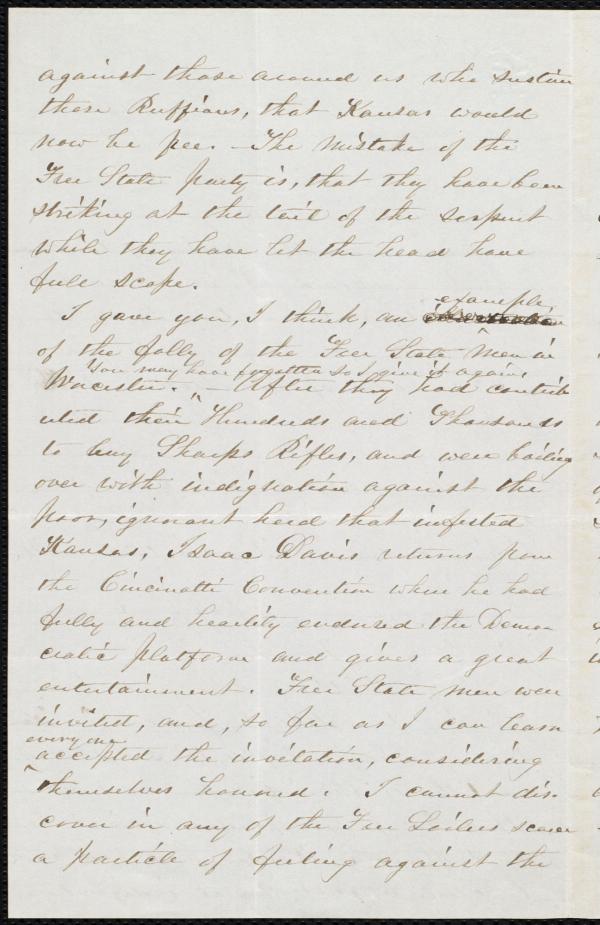 against those around us who sustain
those Ruffians, that Kansas would
now be free. – The mistake of the
Free State party is, that they have been
striking at the tail of the serpent
while they have let the head have
full scope.
example
I gave you, I think, an
of the folly of the Free State Men in
You may have forgotten so I give it again.
Worcester. – After they had contrib
uted their Hundreds and Thousands
to buy Sharps Rifles, and were boiling
over with indignation against the
poor, ignorant herd that infested
Kansas, Isaac Davis returns from
the Cincinatti Convention where he had
fully and heartily endorsed the Demo
cratic platform and gives a great
entertainment. Free State men were
invited, and, so far as I can learn
every one
accepted the invitation, considering
themselves honored. I cannot dis-
cover in any of the Free Soilers scarce
a particle of feeling against the